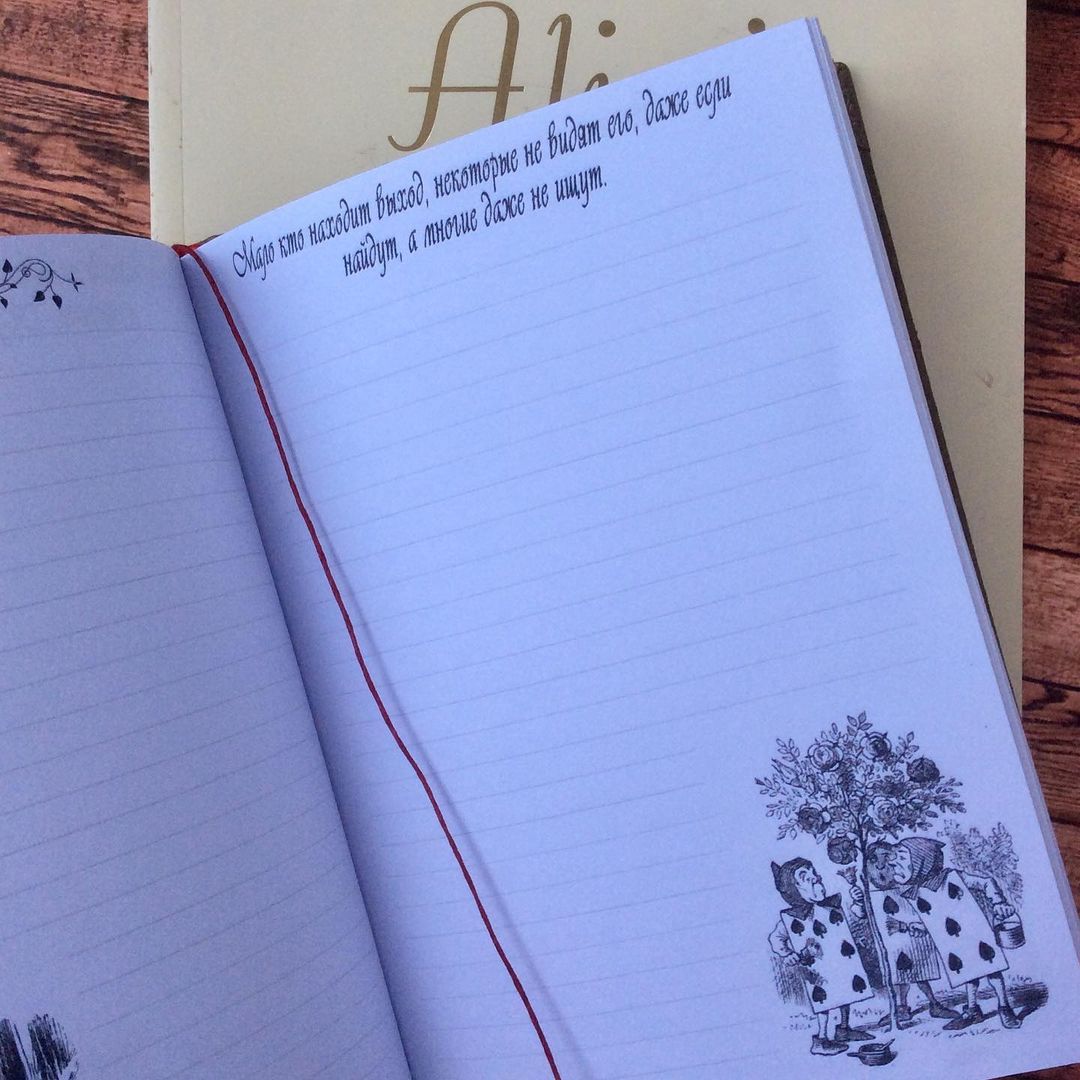 Ali
Мало кто находит выход, некоторые не видят его, даже если
найдут, а многие даже не ищут.